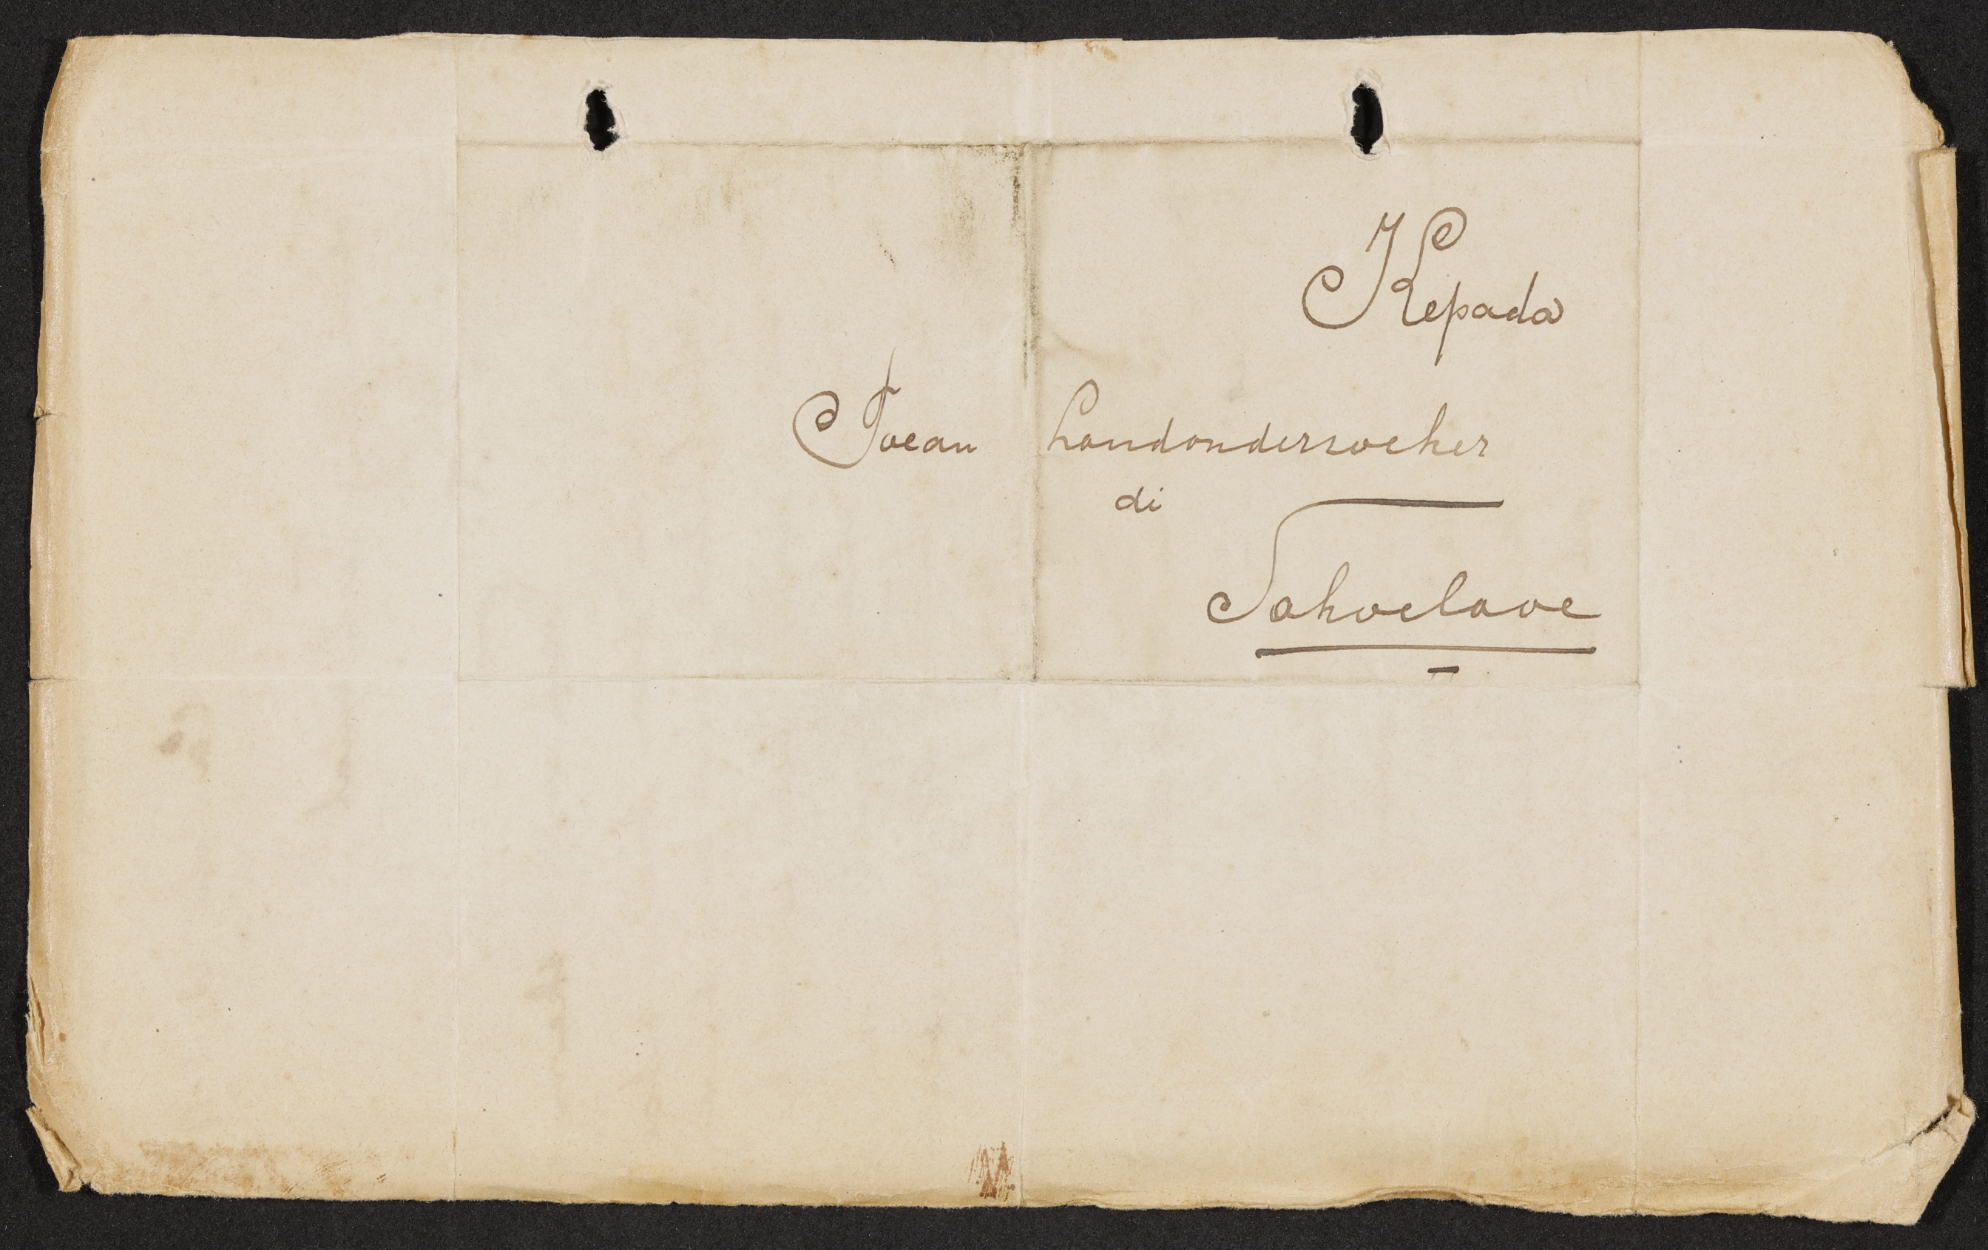 Kepada
Toean Landonderzoeker
di
Sahoelaoe